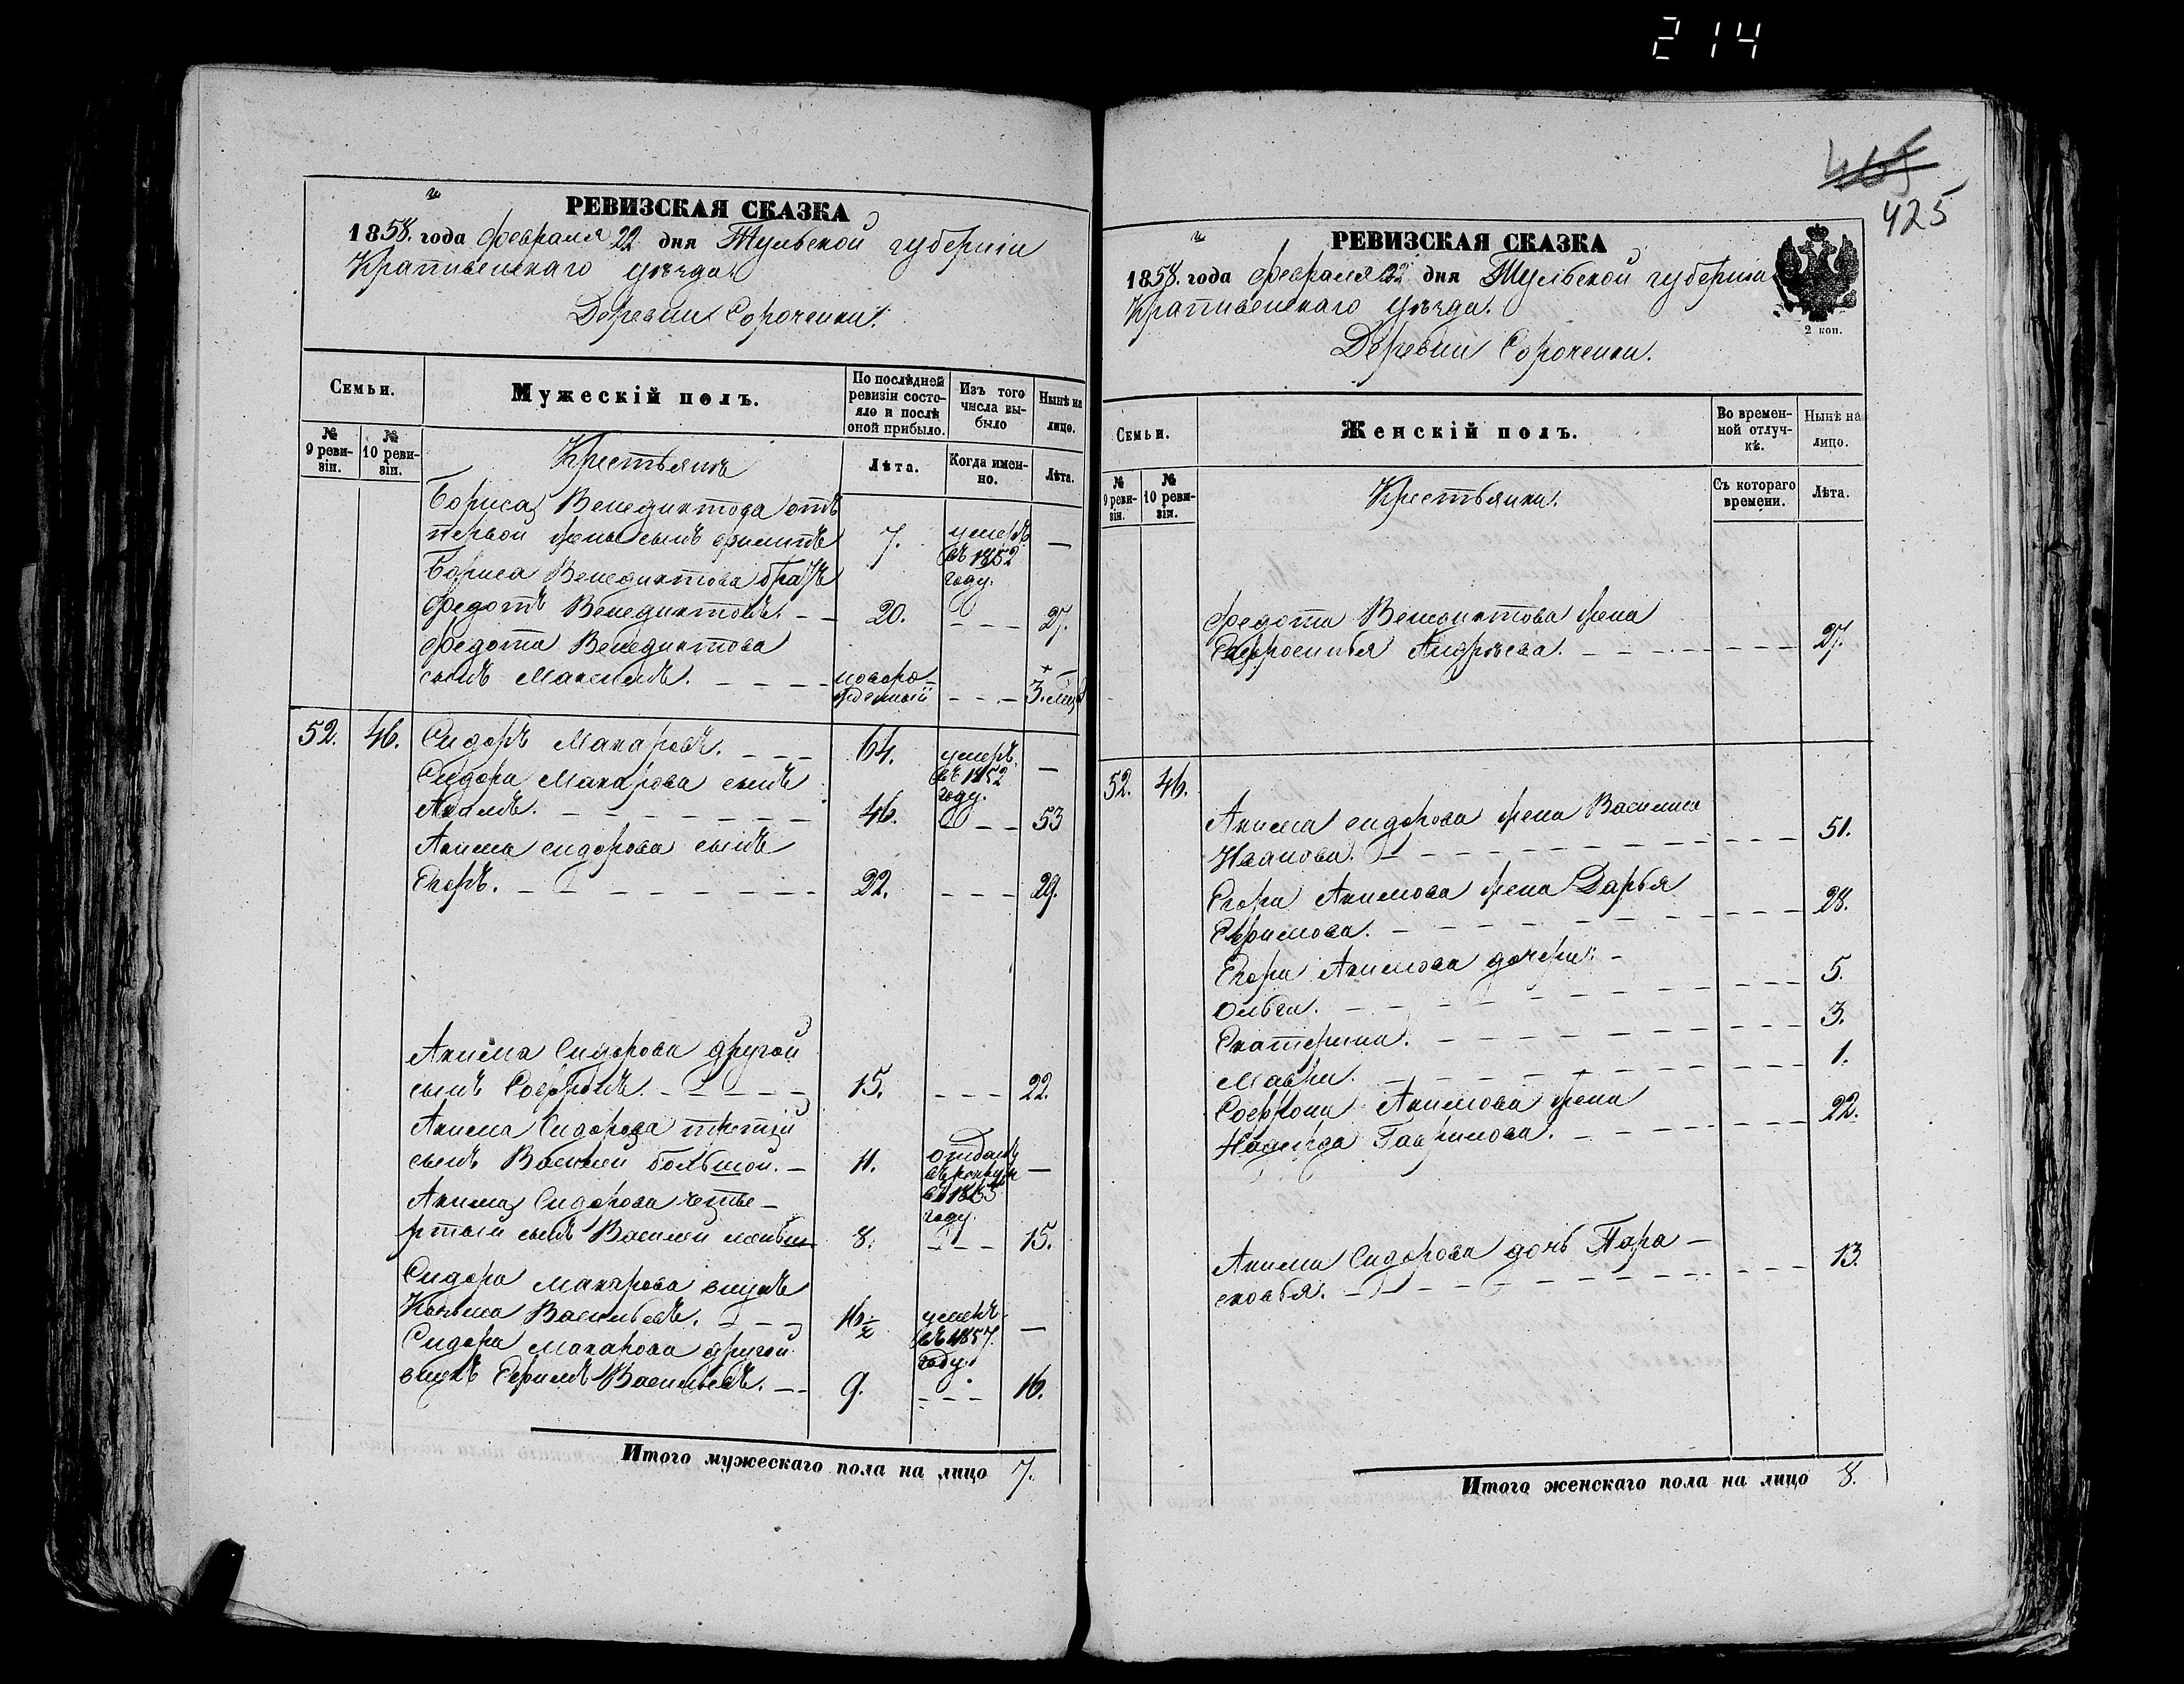 214
465
425
РЕВИЗСКАЯ СКАЗКА
1858. года Февраля 22 дня Тульской губерніи
Крапивенскаго уѣзда.
Деревни Сороченки.
Семьи.
Мужескій полъ.
По послѣдней ревизіи состояло и послѣ оной прибыло.
Изъ того числа выбыло
Нынѣ на лицо.
№ 9 ревизіи.
№ 10 ревизіи.
Лѣта.
Когда именно.
Лѣта.
Крестьянъ
Бориса Венедиктова отъ
первой жены сынъ Филиппъ 7. умеръ въ 1852 году. —
Бориса Венедиктова братъ
Федотъ Венедиктовъ. 20. 27.
Федота Венедиктова
сынъ Максимъ. новорожденный 3. мѣс
52. 46. Сидоръ Макаровъ. 64. умеръ въ 1852 году. —
Сидора Макарова сынъ
Акимъ. 46. 53
Акима Сидорова сынъ
Егоръ. 22. 29.
Акима Сидорова другой
сынъ Софронъ. 15. 22.
Акима Сидорова третій
сынъ Василій большой. 11. отданъ въ рекруты въ 1855 году. —
Акима Сидорова четве-
ртый сынъ Василій меньш 8. 15.
Сидора Макарова внукъ
Козьма Васильевъ. умеръ въ 1857 году. —
Сидора Макарова другой
внукъ Ефимъ Васильевъ. 9. 16.
Итого мужескаго пола на лицо 7.
РЕВИЗСКАЯ СКАЗКА
1858. года Февраля 22 дня Тульской губерніи
Крапивенскаго уѣзда.
Деревни Сороченки.
2 коп.
Семьи.
Женскій полъ.
Во временной отлучкѣ.
Нынѣ на лицо.
№ 9 ревизіи.
№ 10 ревизіи.
Съ котораго времени.
Лѣта.
Крестьянки.
Федота Венедиктова жена
Ефросинья Андрѣева. 27.
52. 46.
Акима Сидорова жена Василиса
Иванова. 51.
Егора Акимова жена Дарья
Ефимова. 28.
Егора Акимова дочери:
Ольга. 5.
Екатерина. 3.
Мавра. 1.
Софрона Акимова жена
Надежда Гаврилова. 22.
Акима Сидорова дочь Пара-
сковья. 13.
Итого женскаго пола на лицо 8.